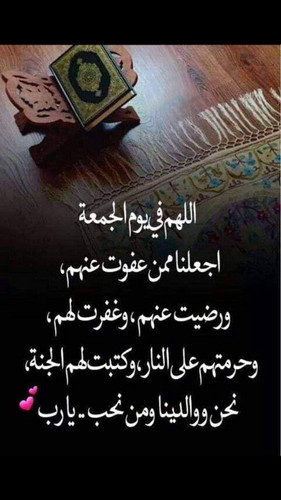 اللهم في يوم الجمعة
اجعلنا ممن عفوت عنهم،
ورضيت عنهم، وغفرت لهم،
وحرمتهم على النار، وكتبت لهم الجنة،
نحن ووالدينا ومن نحب .. يا رب 💕